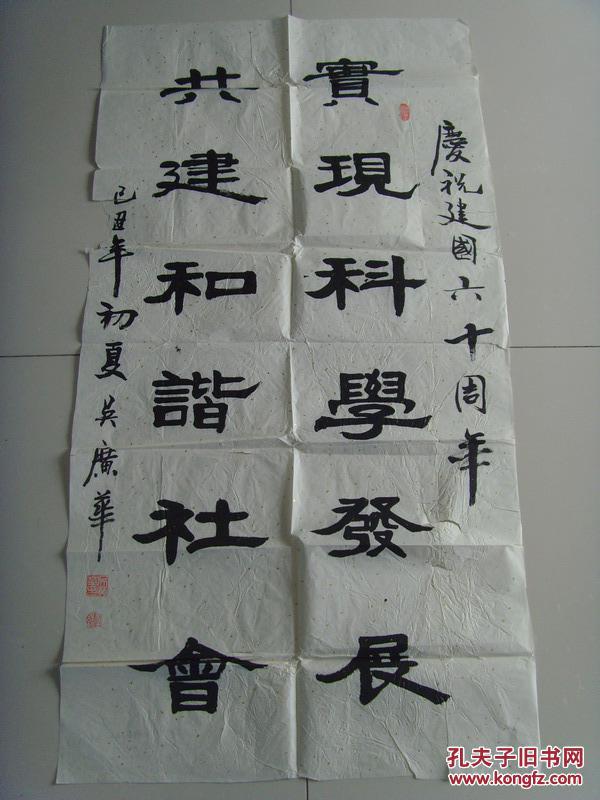 慶祝建國六十周年
實現科學發展
共建和諧社會
己丑年初夏 吳廣華
孔夫子旧书网
www.kongfz.com